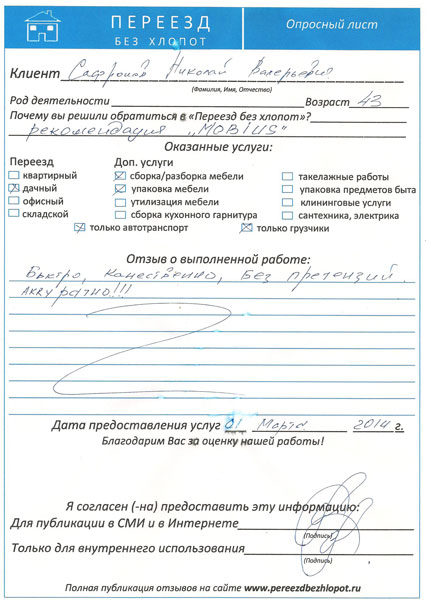 ПЕРЕЕЗД
БЕЗ ХЛОПОТ
Опросный лист
Клиент Сафронов Николай Валерьевич
(Фамилия, Имя, Отчество)
Род деятельности Возраст 43
Почему вы решили обратиться в «Переезд без хлопот»?
рекомендация „MOBIUS"
Оказанные услуги:
Переезд Доп. услуги
квартирный сборка/разборка мебели такелажные работы
дачный упаковка мебели упаковка предметов быта
офисный утилизация мебели клининговые услуги
складской сборка кухонного гарнитура сантехника, электрика
только автотранспорт только грузчики
Отзыв о выполненной работе:
Быстро, Качественно, Без претензий.
Аккуратно!!!
Дата предоставления услуг 01 Марта 2014 г.
Благодарим Вас за оценку нашей работы!
Я согласен (-на) предоставить эту информацию:
Для публикации в СМИ и в Интернете
(Подпись)
Только для внутреннего использования
(Подпись)
Полная публикация отзывов на сайте www.pereezdbezhlopot.ru